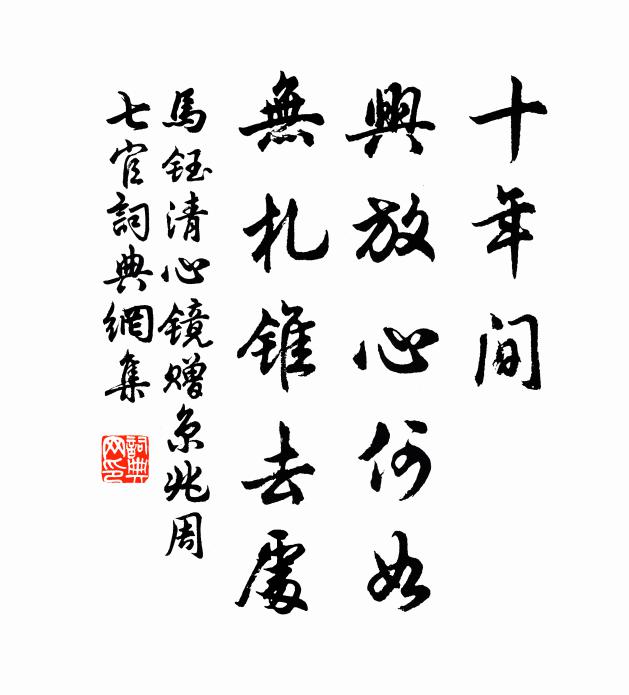 十年间
興放心何如
無札锥去處
馬鈺清心镜赠京兆周
七官詞典網集
詞典网印